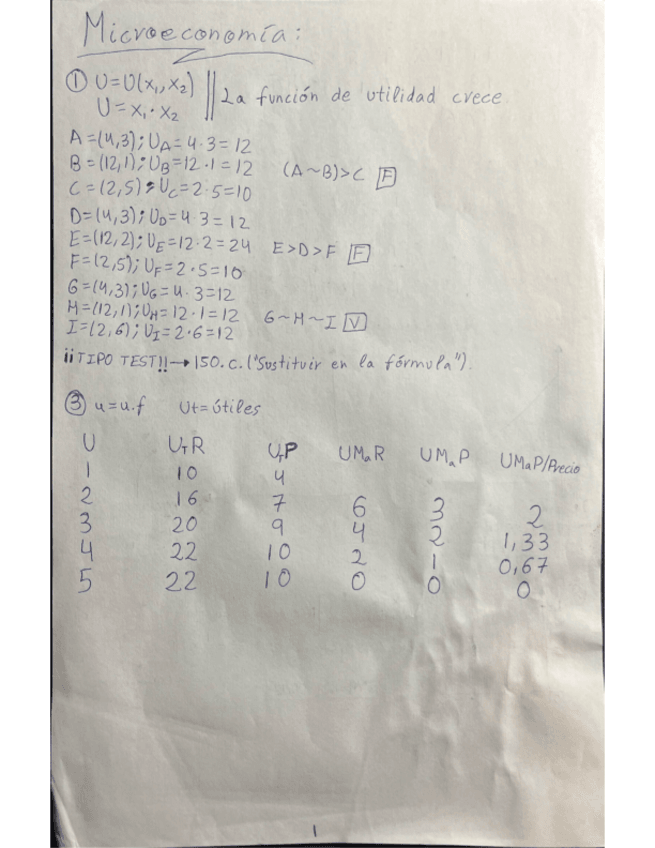 Microeconomía:
① U=U(x₁,x₂) || La función de utilidad crece
U=x₁·x₂
A=(4,3); U_A=4·3=12
B=(12,1); U_B=12·1=12 (A~B)>C F
C=(2,5); U_C=2·5=10
D=(4,3); U_D=4·3=12
E=(12,2); U_E=12·2=24 E>D>F F
F=(2,5); U_F=2·5=10
G=(4,3); U_G=4·3=12
H=(12,1); U_H=12·1=12 G~H~I V
I=(2,6); U_I=2·6=12
¡¡TIPO TEST!!→150.c.("Sustituir en la fórmula").
③ u=u.f Ut=útiles
U U_TR U_TP UMaR UMaP UMaP/Precio
1 10 4
2 16 7 6 3 2
3 20 9 4 2 1,33
4 22 10 2 1 0,67
5 22 10 0 0 0
1